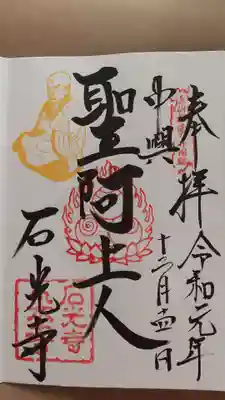 奉拝
令和元年
十二月十四日
中興
聖阿上人
石光寺